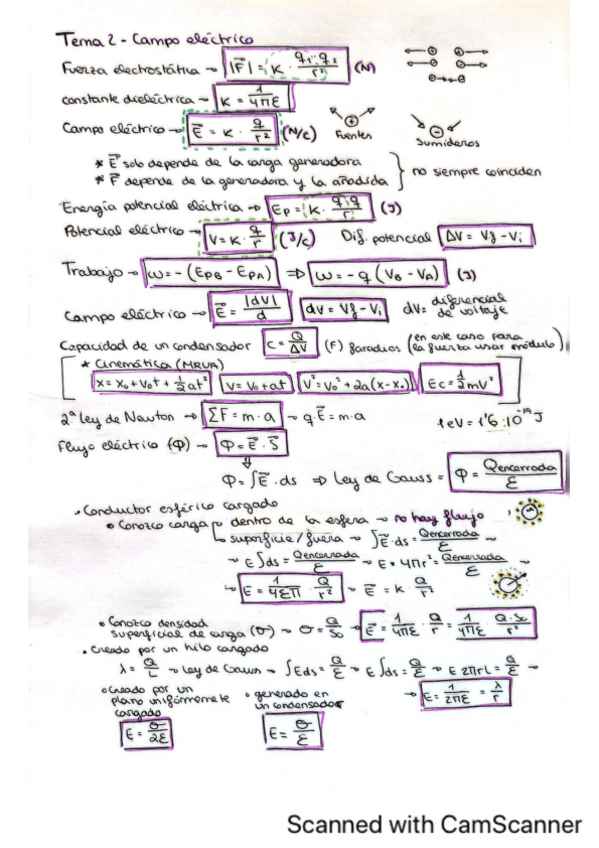 Tema 2 - Campo eléctrico
Fuerza electrostática → |F⃗| = K · q₁·q₂/r² (N)
constante dieléctrica → K = 1/4πε
Campo eléctrico → E⃗ = K · q/r² (N/C) Fuentes Sumideros
* E⃗ solo depende de la carga generadora
* F⃗ depende de la generadora y la añadida } no siempre coinciden
Energía potencial eléctrica → Ep = K · q·q/r (J)
Potencial eléctrico → V = K · q/r (J/C) Dif. potencial ΔV = Vf - Vi
Trabajo → W = -(EpB - EpA) ⇒ W = -q (VB - VA) (J)
Campo eléctrico → E⃗ = |dV|/d dV = Vf - Vi dV = diferencial de voltaje
Capacidad de un condensador C = Q/ΔV (F) faradios (en este caso para la fuerza usar módulo)
* Cinemática (MRUA)
x = x₀ + v₀t + ½at² V = V₀ + at V² = V₀² + 2a(x - x₀) Ec = ½mV²
2ª ley de Newton → ΣF = m·a → q·E⃗ = m·a 1eV = 1'6·10⁻¹⁹ J
Flujo eléctrico (Φ) → Φ = E⃗ · S⃗
⇓
Φ = ∫E⃗·ds ⇒ Ley de Gauss = Φ = Qencerrada/ε
· Conductor esférico cargado
• Conozco carga → dentro de la esfera → no hay flujo
↳ superficie/fuera → ∫E⃗·ds = Qencerrada/ε →
→ E∫ds = Qencerrada/ε → E · 4πr² = Qencerrada/ε →
→ E = 1/4επ · Q/r² → E⃗ = K · Q/r²
• Conozco densidad superficial de carga (σ) → σ = Q/So → E⃗ = 1/4πε · Q/r = 1/4πε · Q·So/r²
· Creado por un hilo cargado
λ = Q/L → Ley de Gauss → ∫Eds = Q/ε → E∫ds = Q/ε → E 2πrL = Q/ε →
→ E = 1/2πε = λ/r
○ creado por un plano uniformemente cargado
E = σ/2ε
• generado en un condensador
E = σ/ε
Scanned with CamScanner